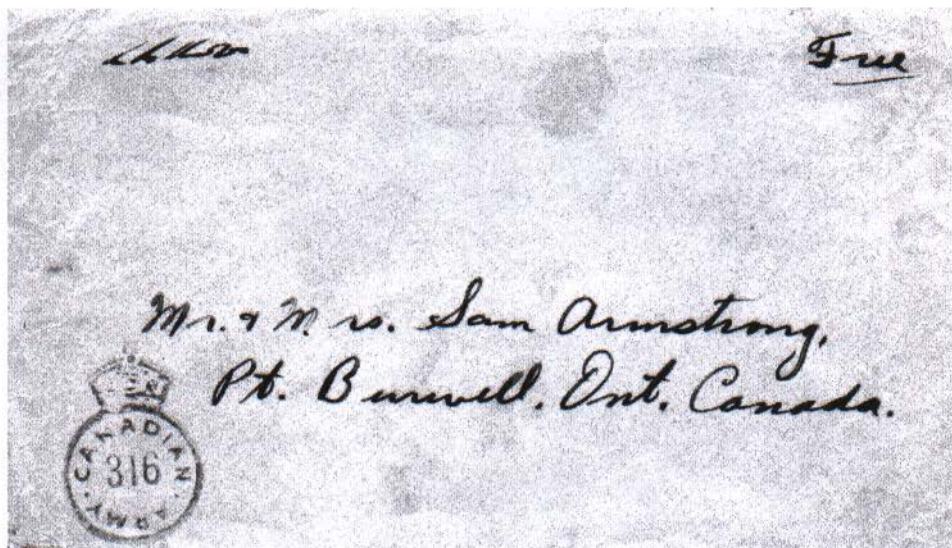 Free
Mr. & Mrs. Sam Armstrong,
Pt. Burwell. Ont. Canada.
CANADIAN
316
ARMY